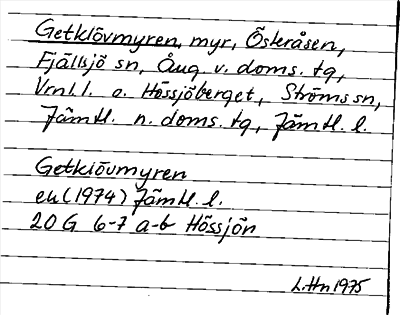 Getklövmyren, myr, Österåsen,
Fjällsjö sn, Ång. v. doms. tg,
Vrnl. l. o. Hössjöberget, Ströms sn,
Jämtl. n. doms. tg, Jämtl. l.
Getklövmyren
ek (1974) Jämtl. l.
20 G 6-7 a-b Hössjön
L. Hn 1975